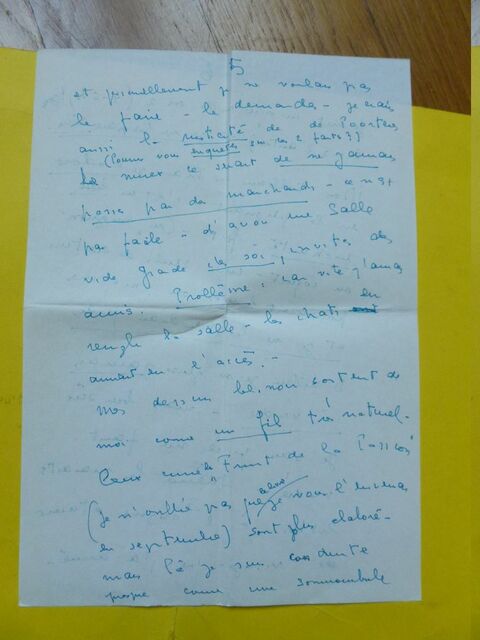 5
et personnellement je ne voulais pas
le faire - le demander - je crais
aussi la rusticité de de Poortere
(Pouvez vous enquêter sur les 2 parts ?)
mieux ce serait de ne jamais
passer par des marchands - ce n'est
pas facile - d'avoir une salle
vide grande chez soi, invites des
amis. Problème : car vite j'aurais
rempli la salle - les chats en
auraient eu l'accès. -
Mes dessins le, non sortent de
moi comme un fil très naturel -
Ceux Front de la Passion
(Je n'oublie pas que je vous l'enverrai
en septembre) sont plus élaboré -
mais là je suis conduite
presque comme une somnambule